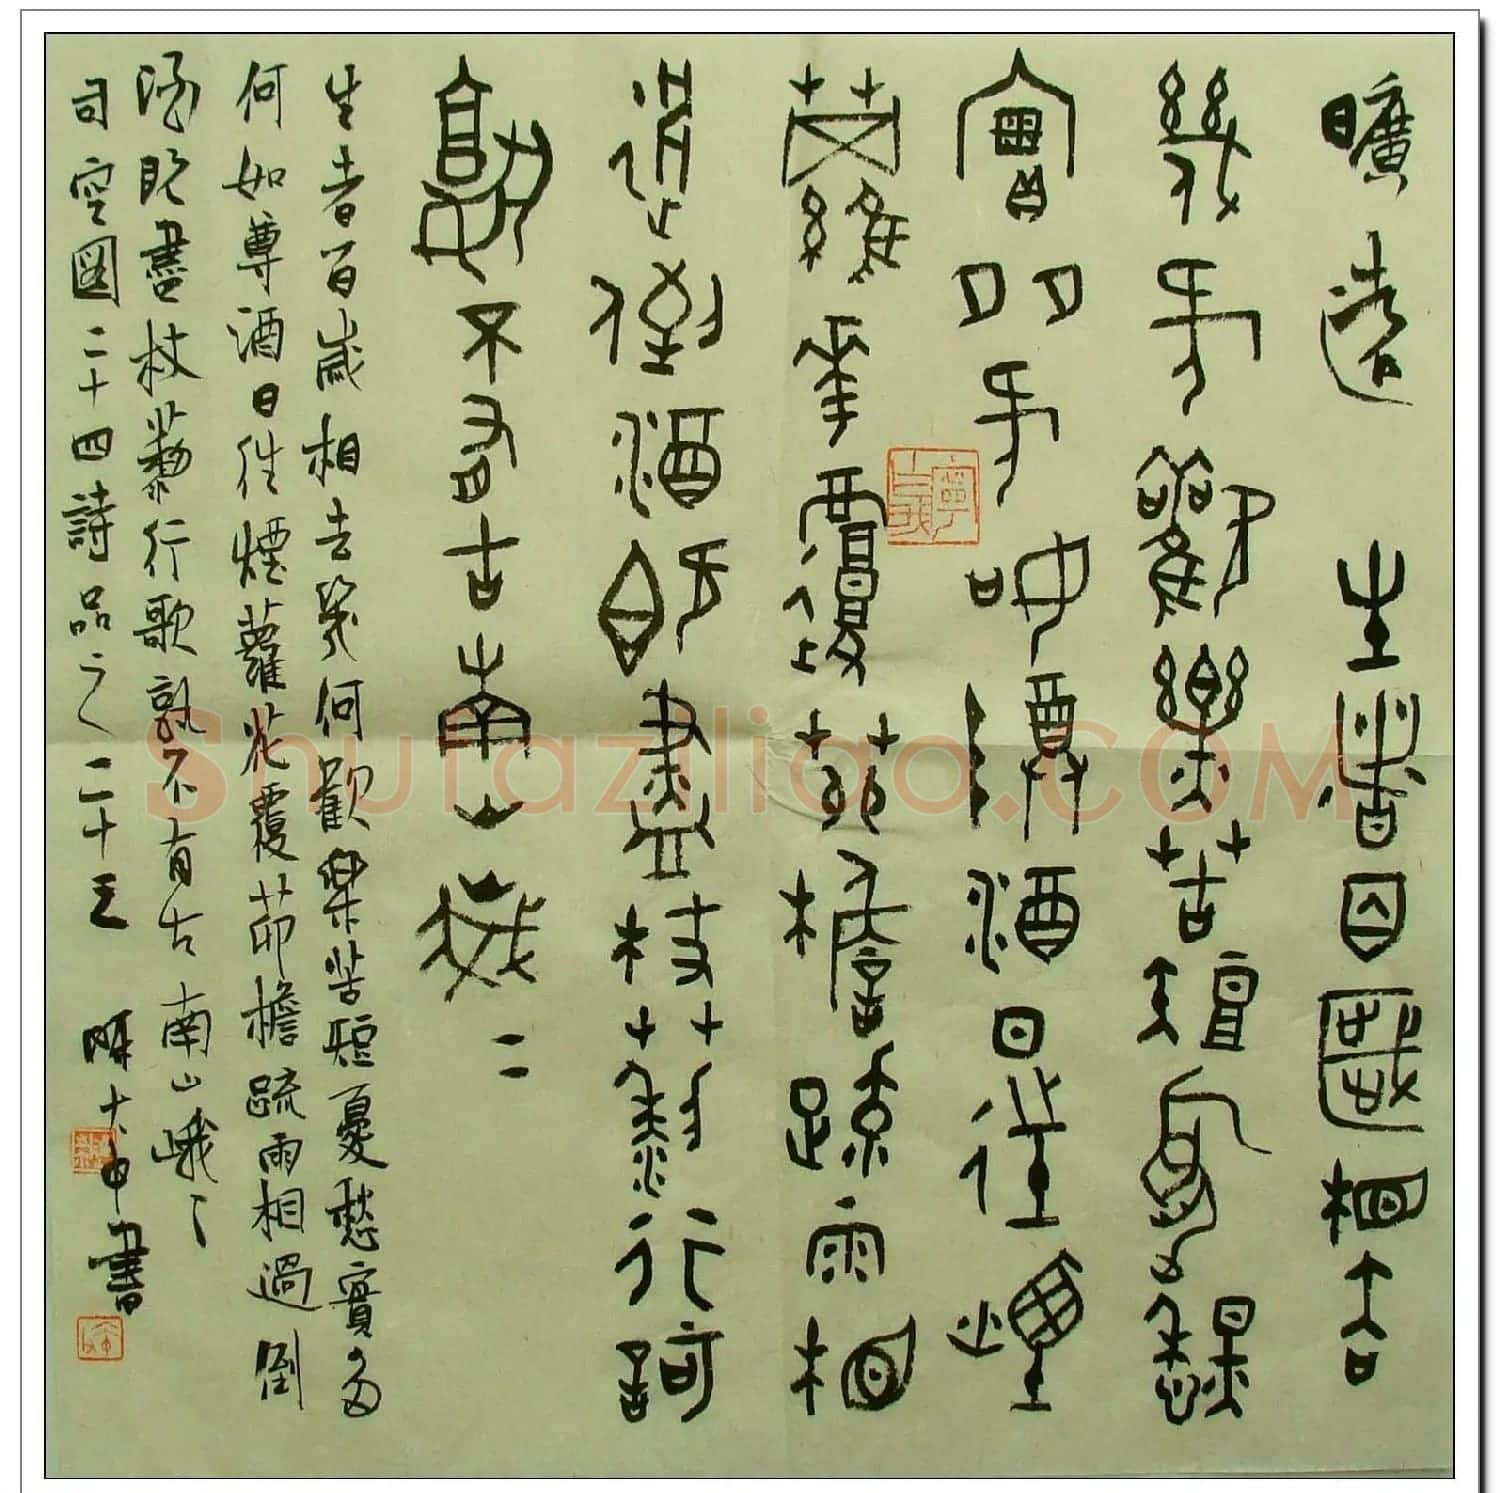 曠達 生者百歲相去
幾何歡樂苦短憂愁
實多何如尊酒日往煙
蘿花覆茆檐疏雨相
過倒酒既盡杖藜行歌
孰不有古南山峨二
生者百歲相去幾何歡樂苦短憂愁實多
何如尊酒日往煙蘿花覆茆檐疏雨相過倒
酒既盡杖藜行歌孰不有古南山峨々
司空图二十四詩品之二十三 陳大中書
Shufaziliao.COM